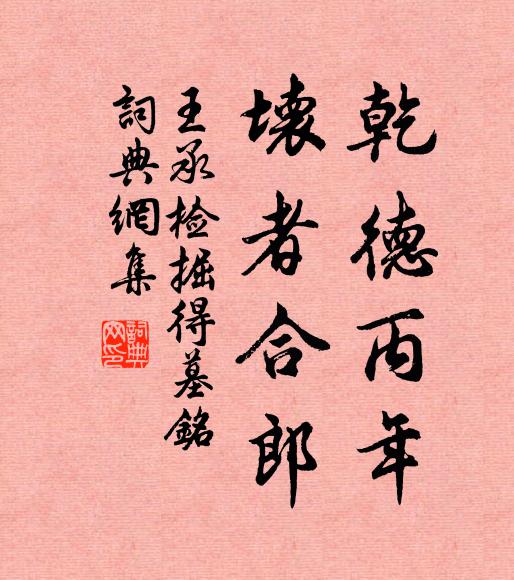 乾德丙年
壞者合郎
王承检掘得墓銘
詞典網集
詞典网印